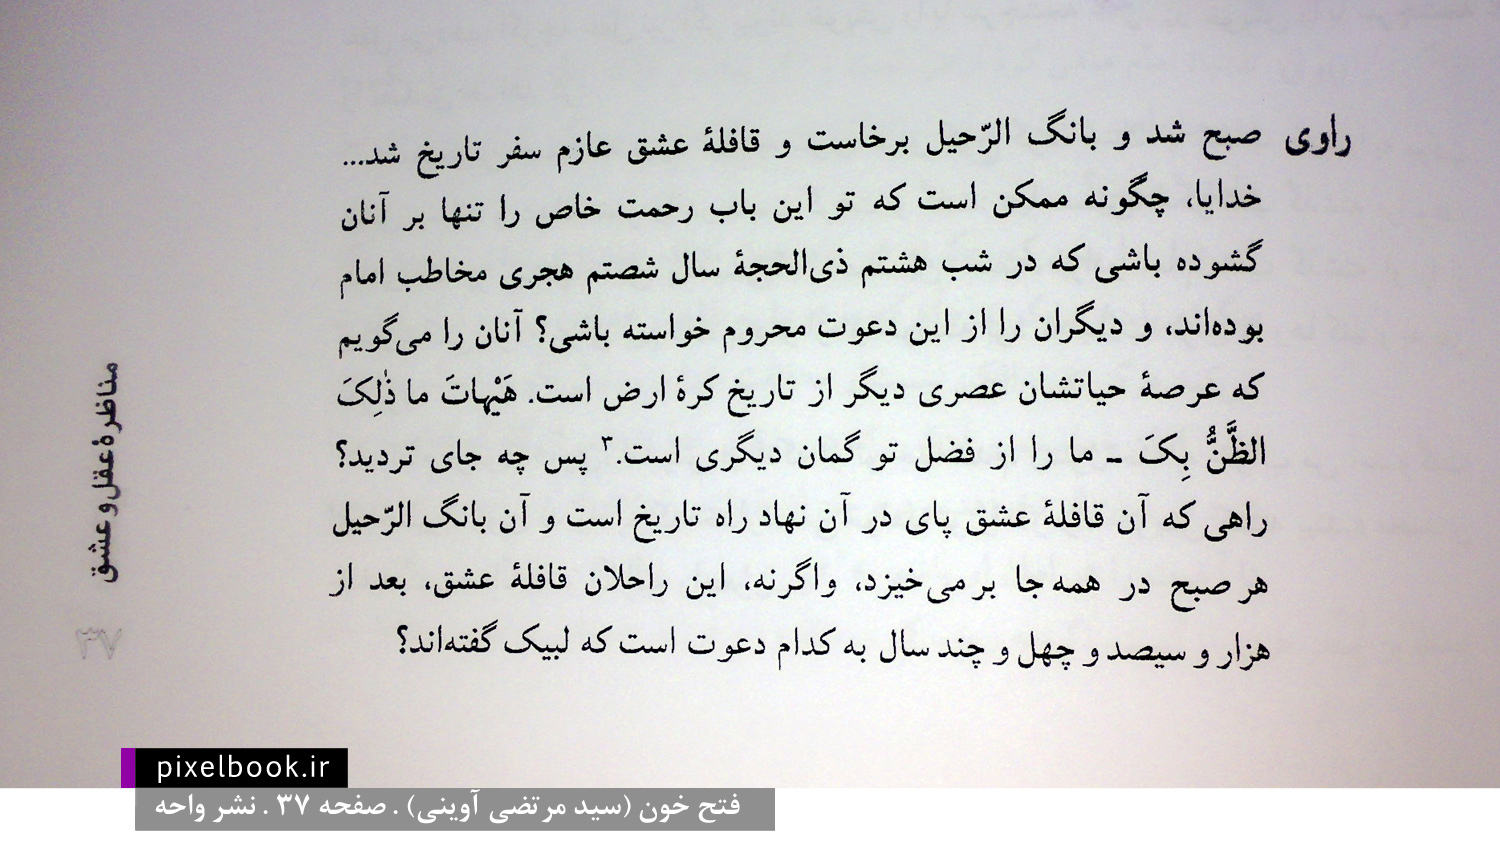 راوی صبح شد و بانگ الرّحیل برخاست و قافلهٔ عشق عازم سفر تاریخ شد...
خدایا، چگونه ممکن است که تو این باب رحمت خاص را تنها بر آنان
گشوده باشی که در شب هشتم ذی‌الحجهٔ سال شصتم هجری مخاطب امام
بوده‌اند، و دیگران را از این دعوت محروم خواسته باشی؟ آنان را می‌گویم
که عرصهٔ حیاتشان عصری دیگر از تاریخ کرهٔ ارض است. هَیْهاتَ ما ذٰلِکَ
الظَّنُّ بِکَ ـ ما را از فضل تو گمان دیگری است.۳ پس چه جای تردید؟
راهی که آن قافلهٔ عشق پای در آن نهاد راه تاریخ است و آن بانگ الرّحیل
هر صبح در همه جا بر می‌خیزد، واگرنه، این راحلان قافلهٔ عشق، بعد از
هزار و سیصد و چهل و چند سال به کدام دعوت است که لبیک گفته‌اند؟
مناظرهٔ عقل و عشق
۳۷
pixelbook.ir
فتح خون (سید مرتضی آوینی) . صفحه ۳۷ . نشر واحه